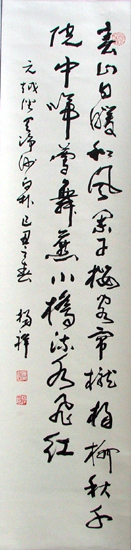 春山日暖和风阑干楼阁帘栊杨柳秋千
院中啼莺舞燕小桥流水飞红
元越调天净沙白朴己丑之春 杨